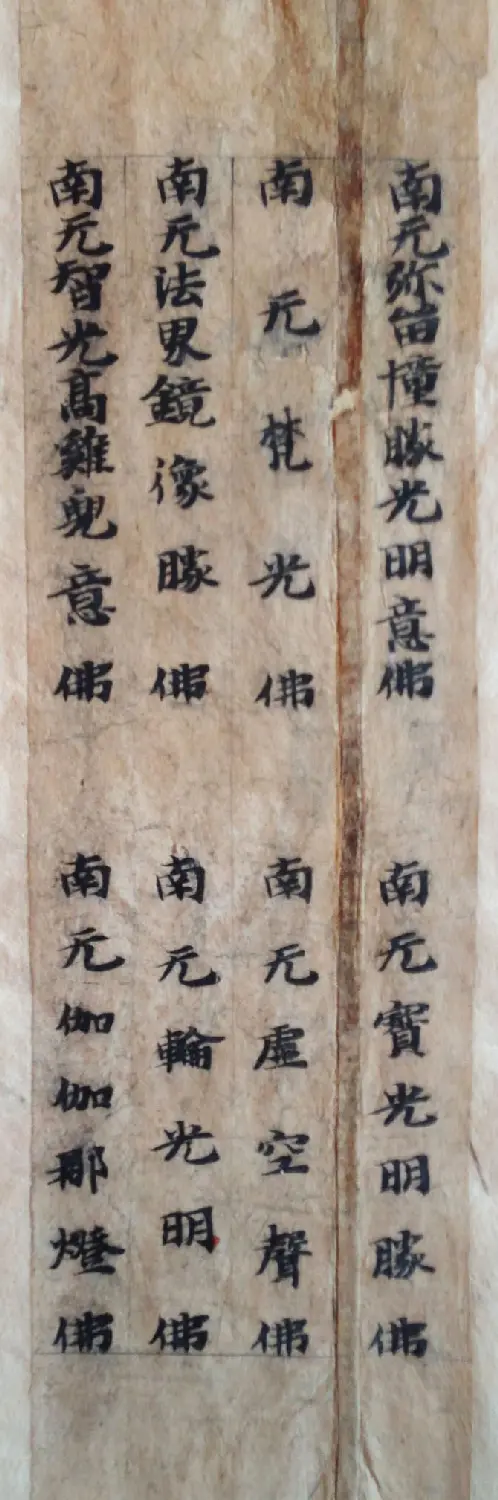 南无弥留幢勝光明意佛
南无寶光明勝佛
南无梵光佛
南无虛空聲佛
南无法界鏡像勝佛
南无輪光明佛
南无智光高雞兜意佛
南无伽伽那燈佛